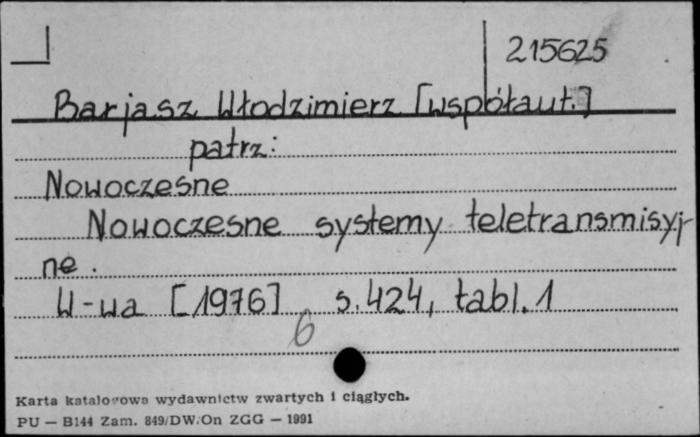 215625
Barjasz Włodzimierz [współaut.]
patrz:
Nowoczesne
Nowoczesne systemy teletransmisyj
ne.
W-wa [1976] s. 424, tabl. 1
6
Karta katalogowa wydawnictw zwartych i ciągłych.
PU — B144 Zam. 849/DW/On ZGG — 1991